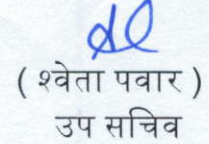 ( श्वेता पवार )
उप सचिव